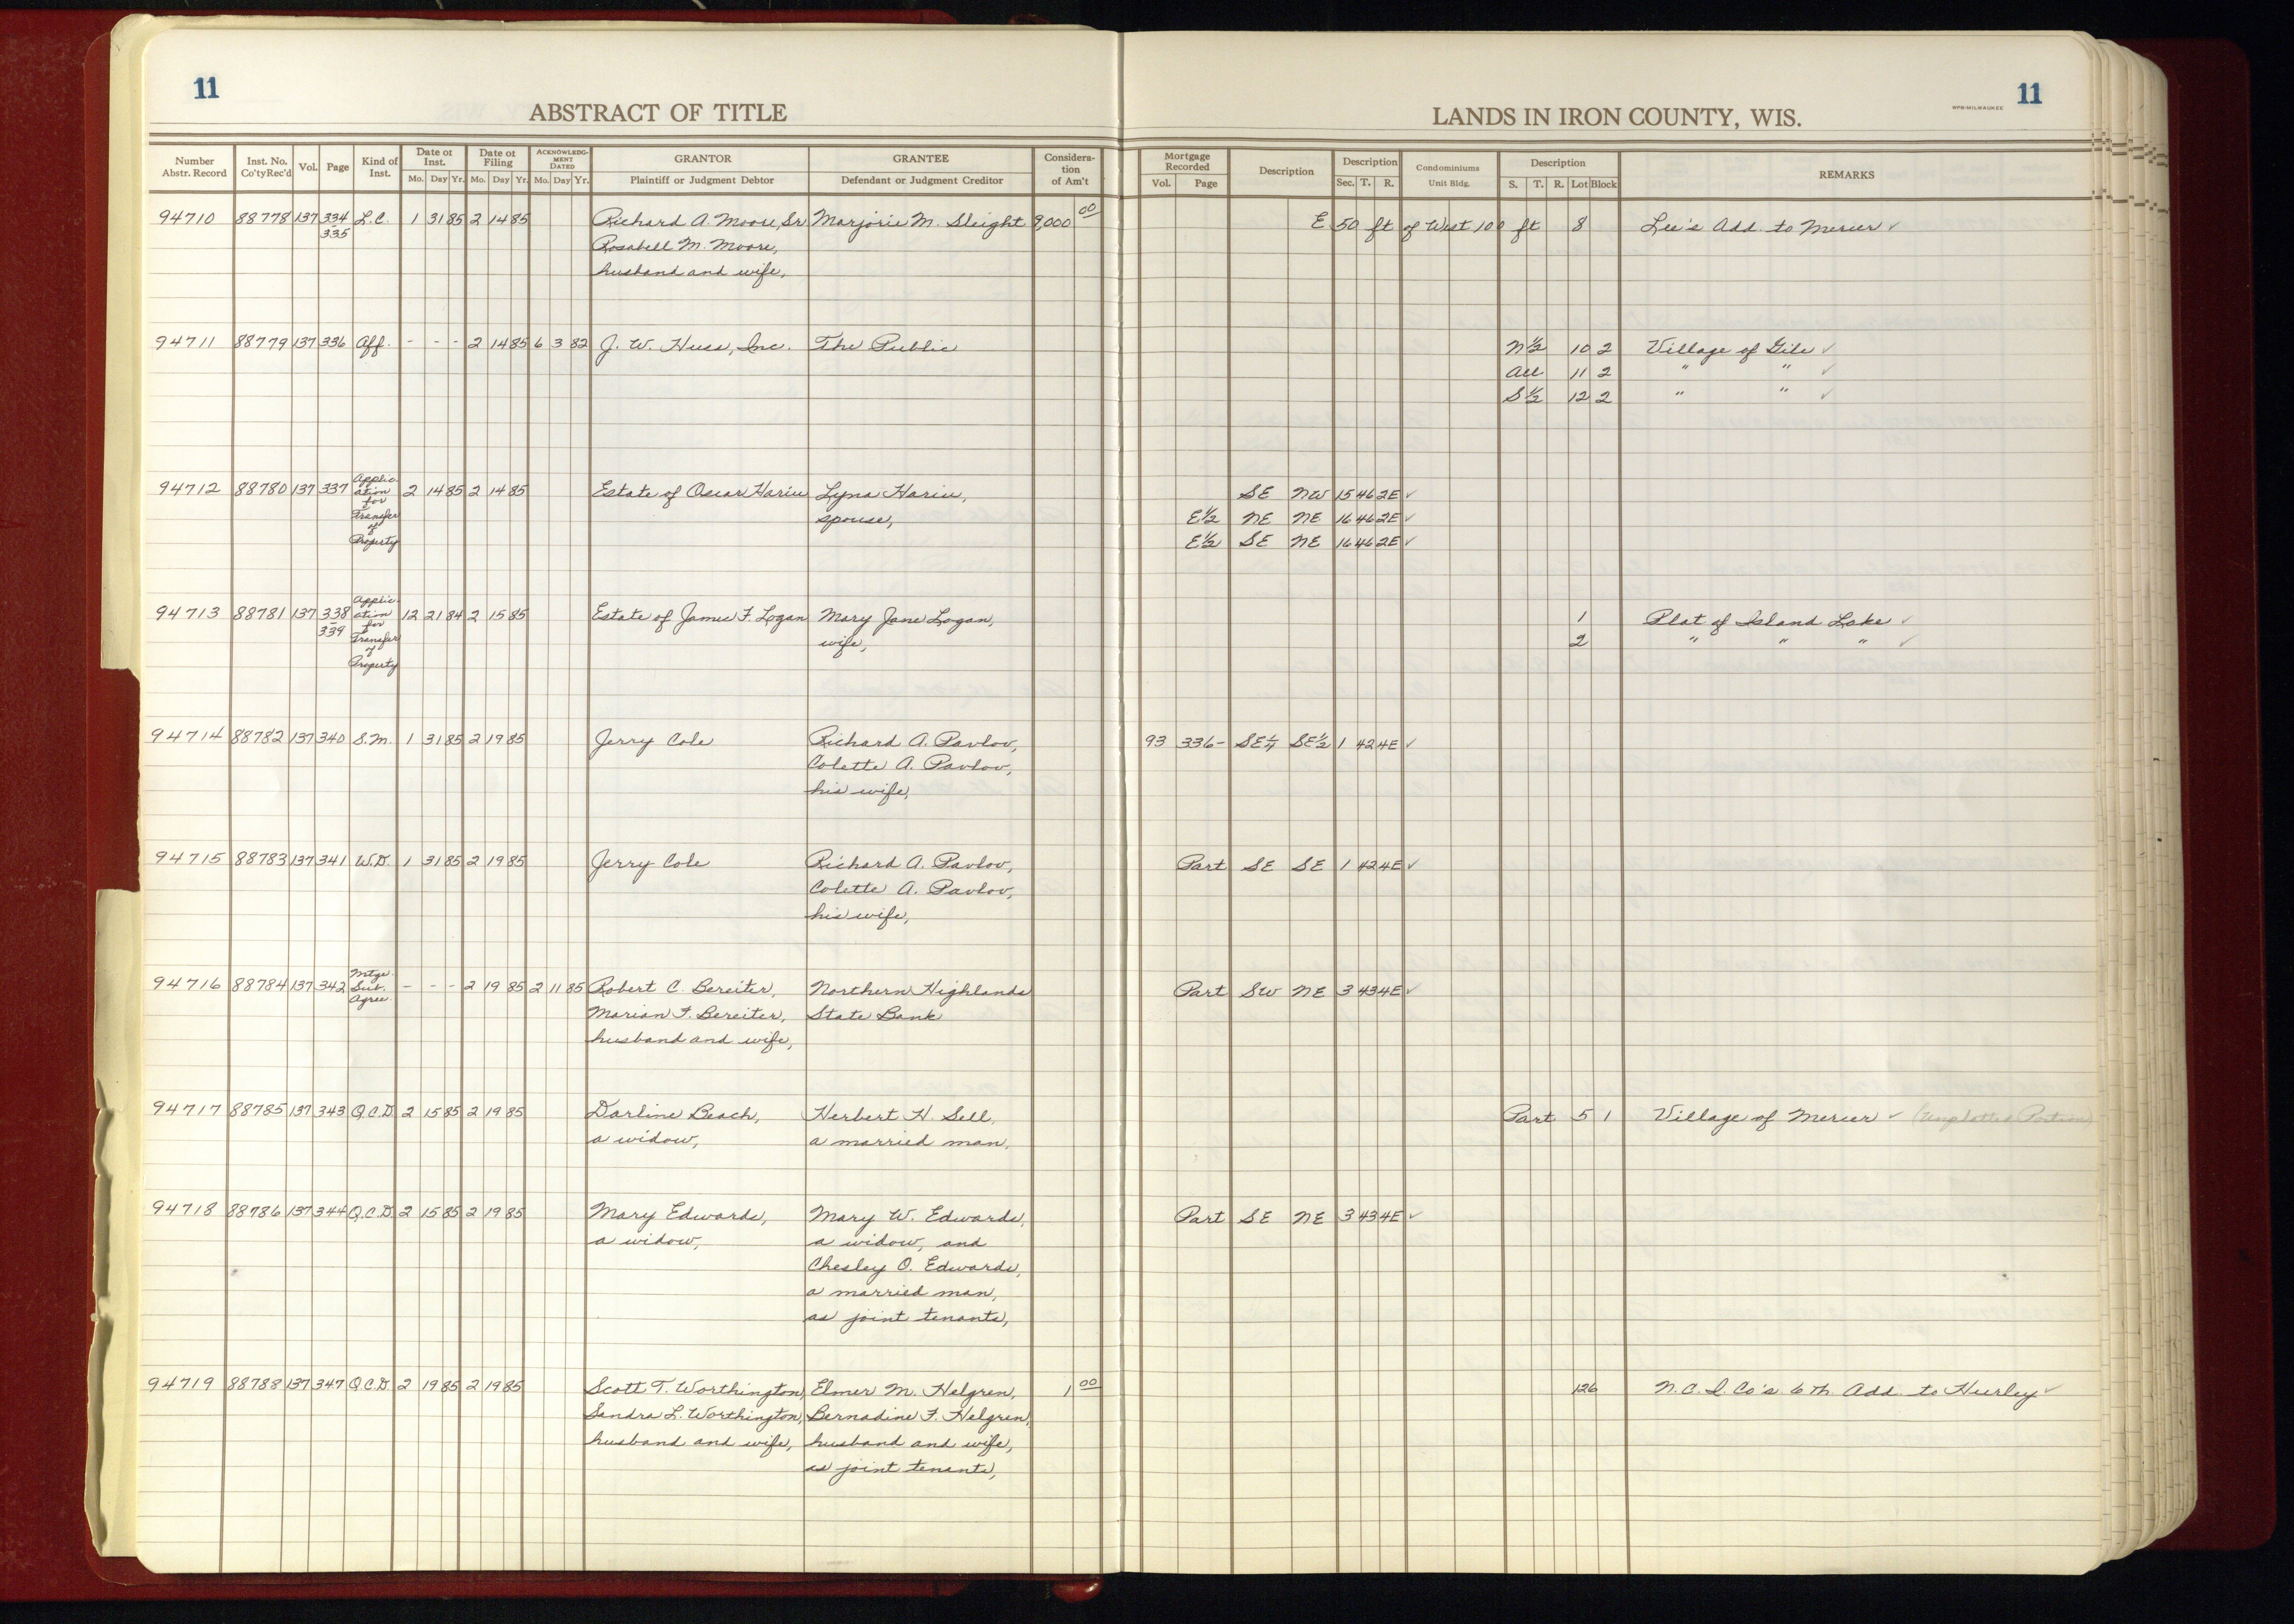 11
11
ABSTRACT OF TITLE
LANDS IN IRON COUNTY, WIS.
WPB-MILWAUKEE
Number Abstr. Record Inst. No. Co'ty Rec'd Vol. Page Kind of Inst. Date of Inst. Mo. Day Yr. Date of Filing Mo. Day Yr. ACKNOWLEDG-MENT DATED Mo. Day Yr. GRANTOR Plaintiff or Judgment Debtor GRANTEE Defendant or Judgment Creditor Considera-tion of Am't Mortgage Recorded Vol. Page Description Description Sec. T. R. Condominiums Unit Bldg. Description S. T. R. Lot Block REMARKS
94710 88778 137 334 L.C. 1 31 85 2 14 85 Richard A. Moore, Sr. Marjorie M. Sleight 9,000 00 E 50 ft of West 100 ft 8 Lee's Add. to Mercer ✓
335 Rosabell M. Moore,
husband and wife,
94711 88779 137 336 Aff. - - - 2 14 85 6 3 82 J. W. Huss, Inc. The Public N½ 10 2 Village of Gile ✓
All 11 2 " " ✓
S½ 12 2 " " ✓
94712 88780 137 337 Applic-ation for Transfer of Property 2 14 85 2 14 85 Estate of Oscar Hariu Lyna Hariu, SE NW 15 46 2E ✓
spouse, E½ NE NE 16 46 2E ✓
E½ SE NE 16 46 2E ✓
94713 88781 137 338 Applic-ation for Transfer of Property 12 21 84 2 15 85 Estate of James F. Logan Mary Jane Logan, 1 Plat of Island Lake ✓
339 wife, 2 " " " ✓
94714 88782 137 340 S.M. 1 31 85 2 19 85 Jerry Cole Richard A. Pavlov, 93 336- SE¼ SE½ 1 42 4E ✓
Colette A. Pavlov,
his wife,
94715 88783 137 341 W.D. 1 31 85 2 19 85 Jerry Cole Richard A. Pavlov, Part SE SE 1 42 4E ✓
Colette A. Pavlov,
his wife,
94716 88784 137 342 Mtge. Sub. Agree. - - - 2 19 85 2 11 85 Robert C. Bereiter, Northern Highlands Part SW NE 3 43 4E ✓
Marian F. Bereiter, State Bank
husband and wife,
94717 88785 137 343 Q.C.D. 2 15 85 2 19 85 Darline Beach, Herbert H. Sell, Part 5 1 Village of Mercer ✓ (Unplatted Portion)
a widow, a married man,
94718 88786 137 344 Q.C.D. 2 15 85 2 19 85 Mary Edwards, Mary W. Edwards, Part SE NE 3 43 4E ✓
a widow, a widow, and
Chesley O. Edwards,
a married man,
as joint tenants,
94719 88788 137 347 Q.C.D. 2 19 85 2 19 85 Scott T. Worthington, Elmer M. Helgren, 1 00 126 N.C.I. Co's 6th Add. to Hurley ✓
Sandra L. Worthington, Bernadine F. Helgren,
husband and wife, husband and wife,
as joint tenants,